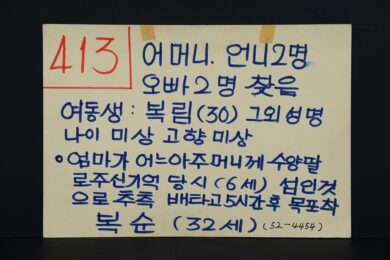 413
어머니. 언니 2명
오빠 2명 찾음
여동생 : 복림 (30) 그외 성명
나이 미상 고향 미상
엄마가 어느아주머니께 수양딸
로주신기억 당시 (6세) 섬인것
으로 추측 배타고 5시간후 목포착
복순 (32세) (52-4454)